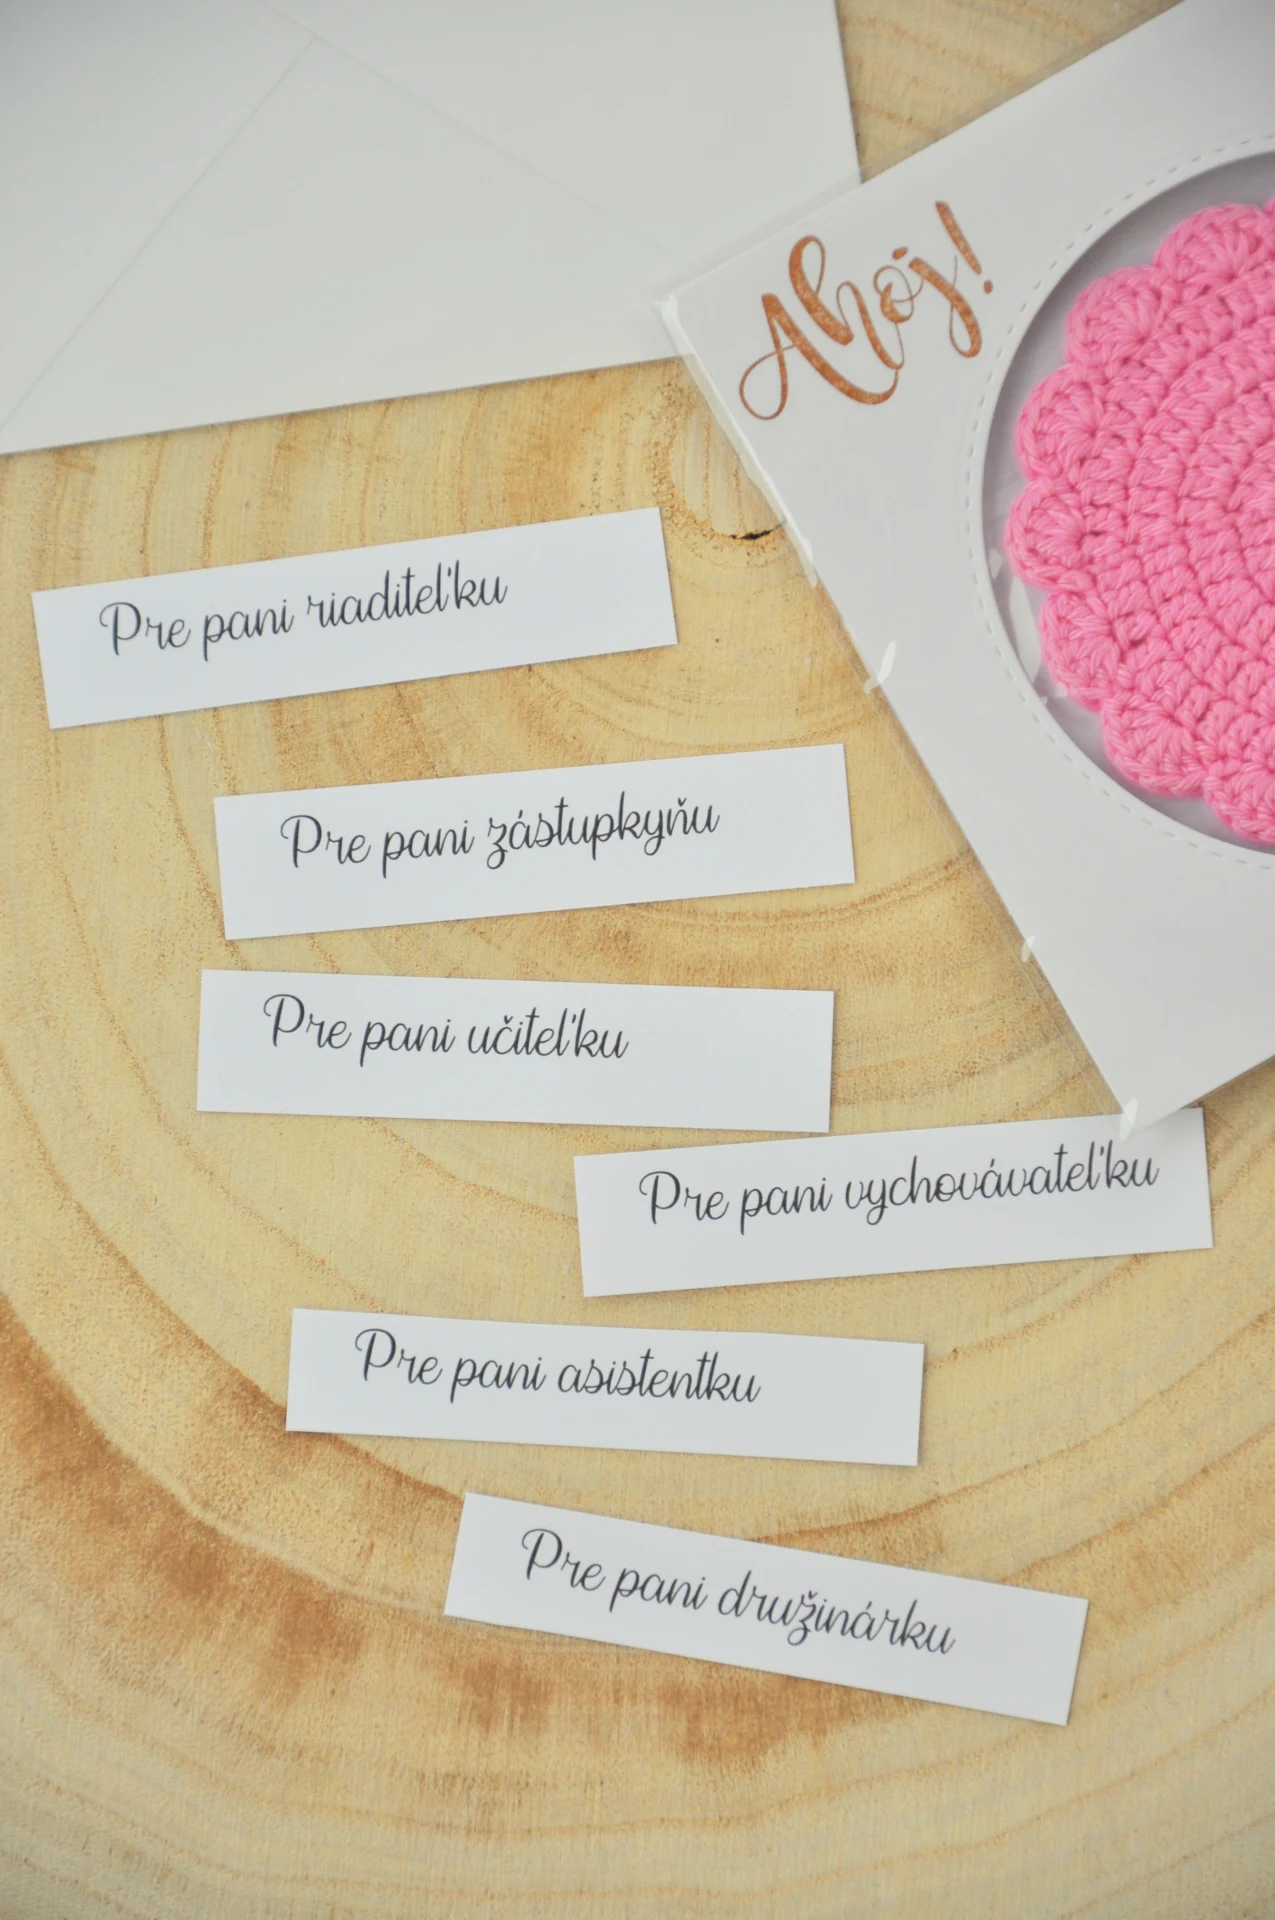 Ahoj!
Pre pani riaditeľku
Pre pani zástupkyňu
Pre pani učiteľku
Pre pani vychovávateľku
Pre pani asistentku
Pre pani družinárku